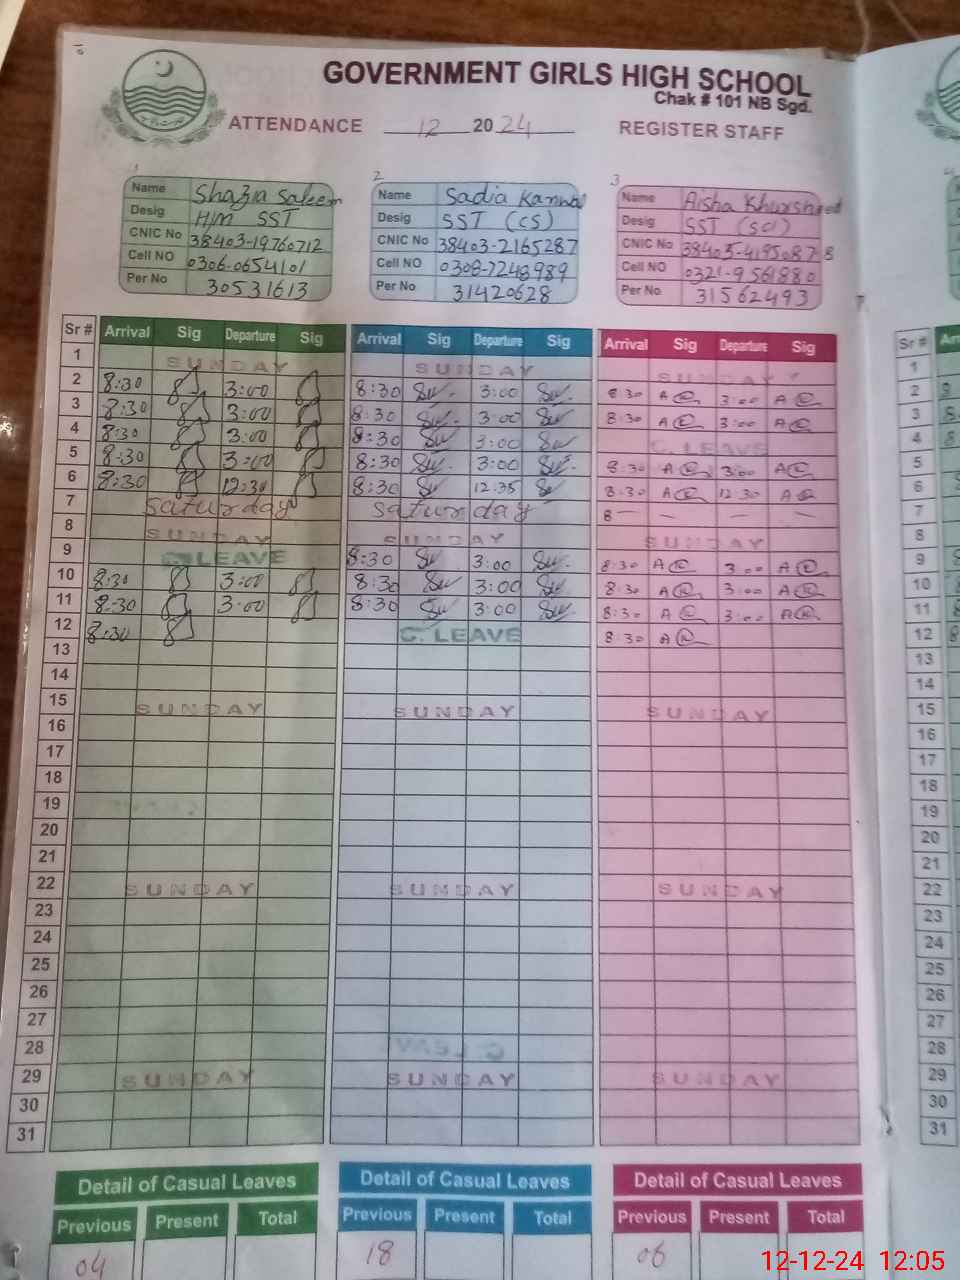 GOVERNMENT GIRLS HIGH SCHOOL
Chak # 101 NB Sgd.
ATTENDANCE 12 2024 REGISTER STAFF
1 2 3
Name Shazia Saleem Name Sadia Kanwal Name Aisha Khursheed
Desig H/M SST Desig SST (CS) Desig SST (Sci)
CNIC No 38403-19760712 CNIC No 38403-2165287 CNIC No 38403-4195087-8
Cell NO 0306-0654101 Cell NO 0308-7248989 Cell NO 0321-9561880
Per No 30531613 Per No 31420628 Per No 31562493
Sr # Arrival Sig Departure Sig Arrival Sig Departure Sig Arrival Sig Departure Sig Sr #
1 SUNDAY SUNDAY SUNDAY 1
2 8:30 3:00 8:30 3:00 8:30 3:00 2
3 8:30 3:00 8:30 3:00 8:30 3:00 3
4 8:30 3:00 8:30 3:00 C. LEAVE 4
5 8:30 3:00 8:30 3:00 8:30 3:00 5
6 8:30 12:30 8:30 12:35 8:30 12:30 6
7 Saturday Saturday 8 — — — — 7
8 SUNDAY SUNDAY SUNDAY 8
9 C. LEAVE 8:30 3:00 8:30 3:00 9
10 8:30 3:00 8:30 3:00 8:30 3:00 10
11 8:30 3:00 8:30 3:00 8:30 3:00 11
12 8:30 C. LEAVE 8:30 12
13 13
14 14
15 SUNDAY SUNDAY SUNDAY 15
16 16
17 17
18 18
19 19
20 20
21 21
22 SUNDAY SUNDAY SUNDAY 22
23 23
24 24
25 25
26 26
27 27
28 28
29 SUNDAY SUNDAY SUNDAY 29
30 30
31 31
Detail of Casual Leaves Detail of Casual Leaves Detail of Casual Leaves
Previous Present Total Previous Present Total Previous Present Total
04 18 06
12-12-24 12:05